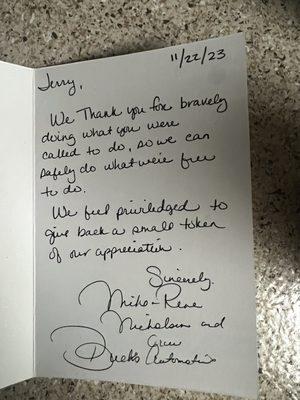 11/22/23
Jerry,
We Thank you for bravely
doing what you were
called to do, so we can
safely do what we're free
to do.
We feel priviledged to
give back a small token
of our appreciation.
Sincerely,
Mike & Rene
Nicholson and
Crew
Duck's Automotive